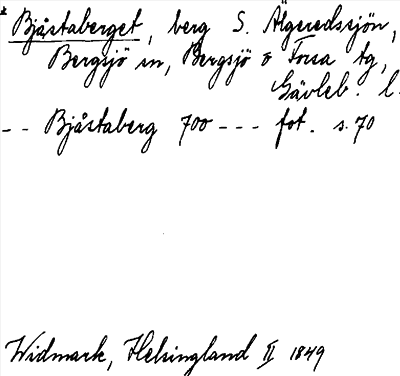 * Bjåstaberget, berg S. Älgeredssjön,
Bergsjö sn, Bergsjö o Forsa tg,
Gävleb. l.
-- Bjåstaberg 700 --- fot. s. 70
Widmark, Helsingland II 1849